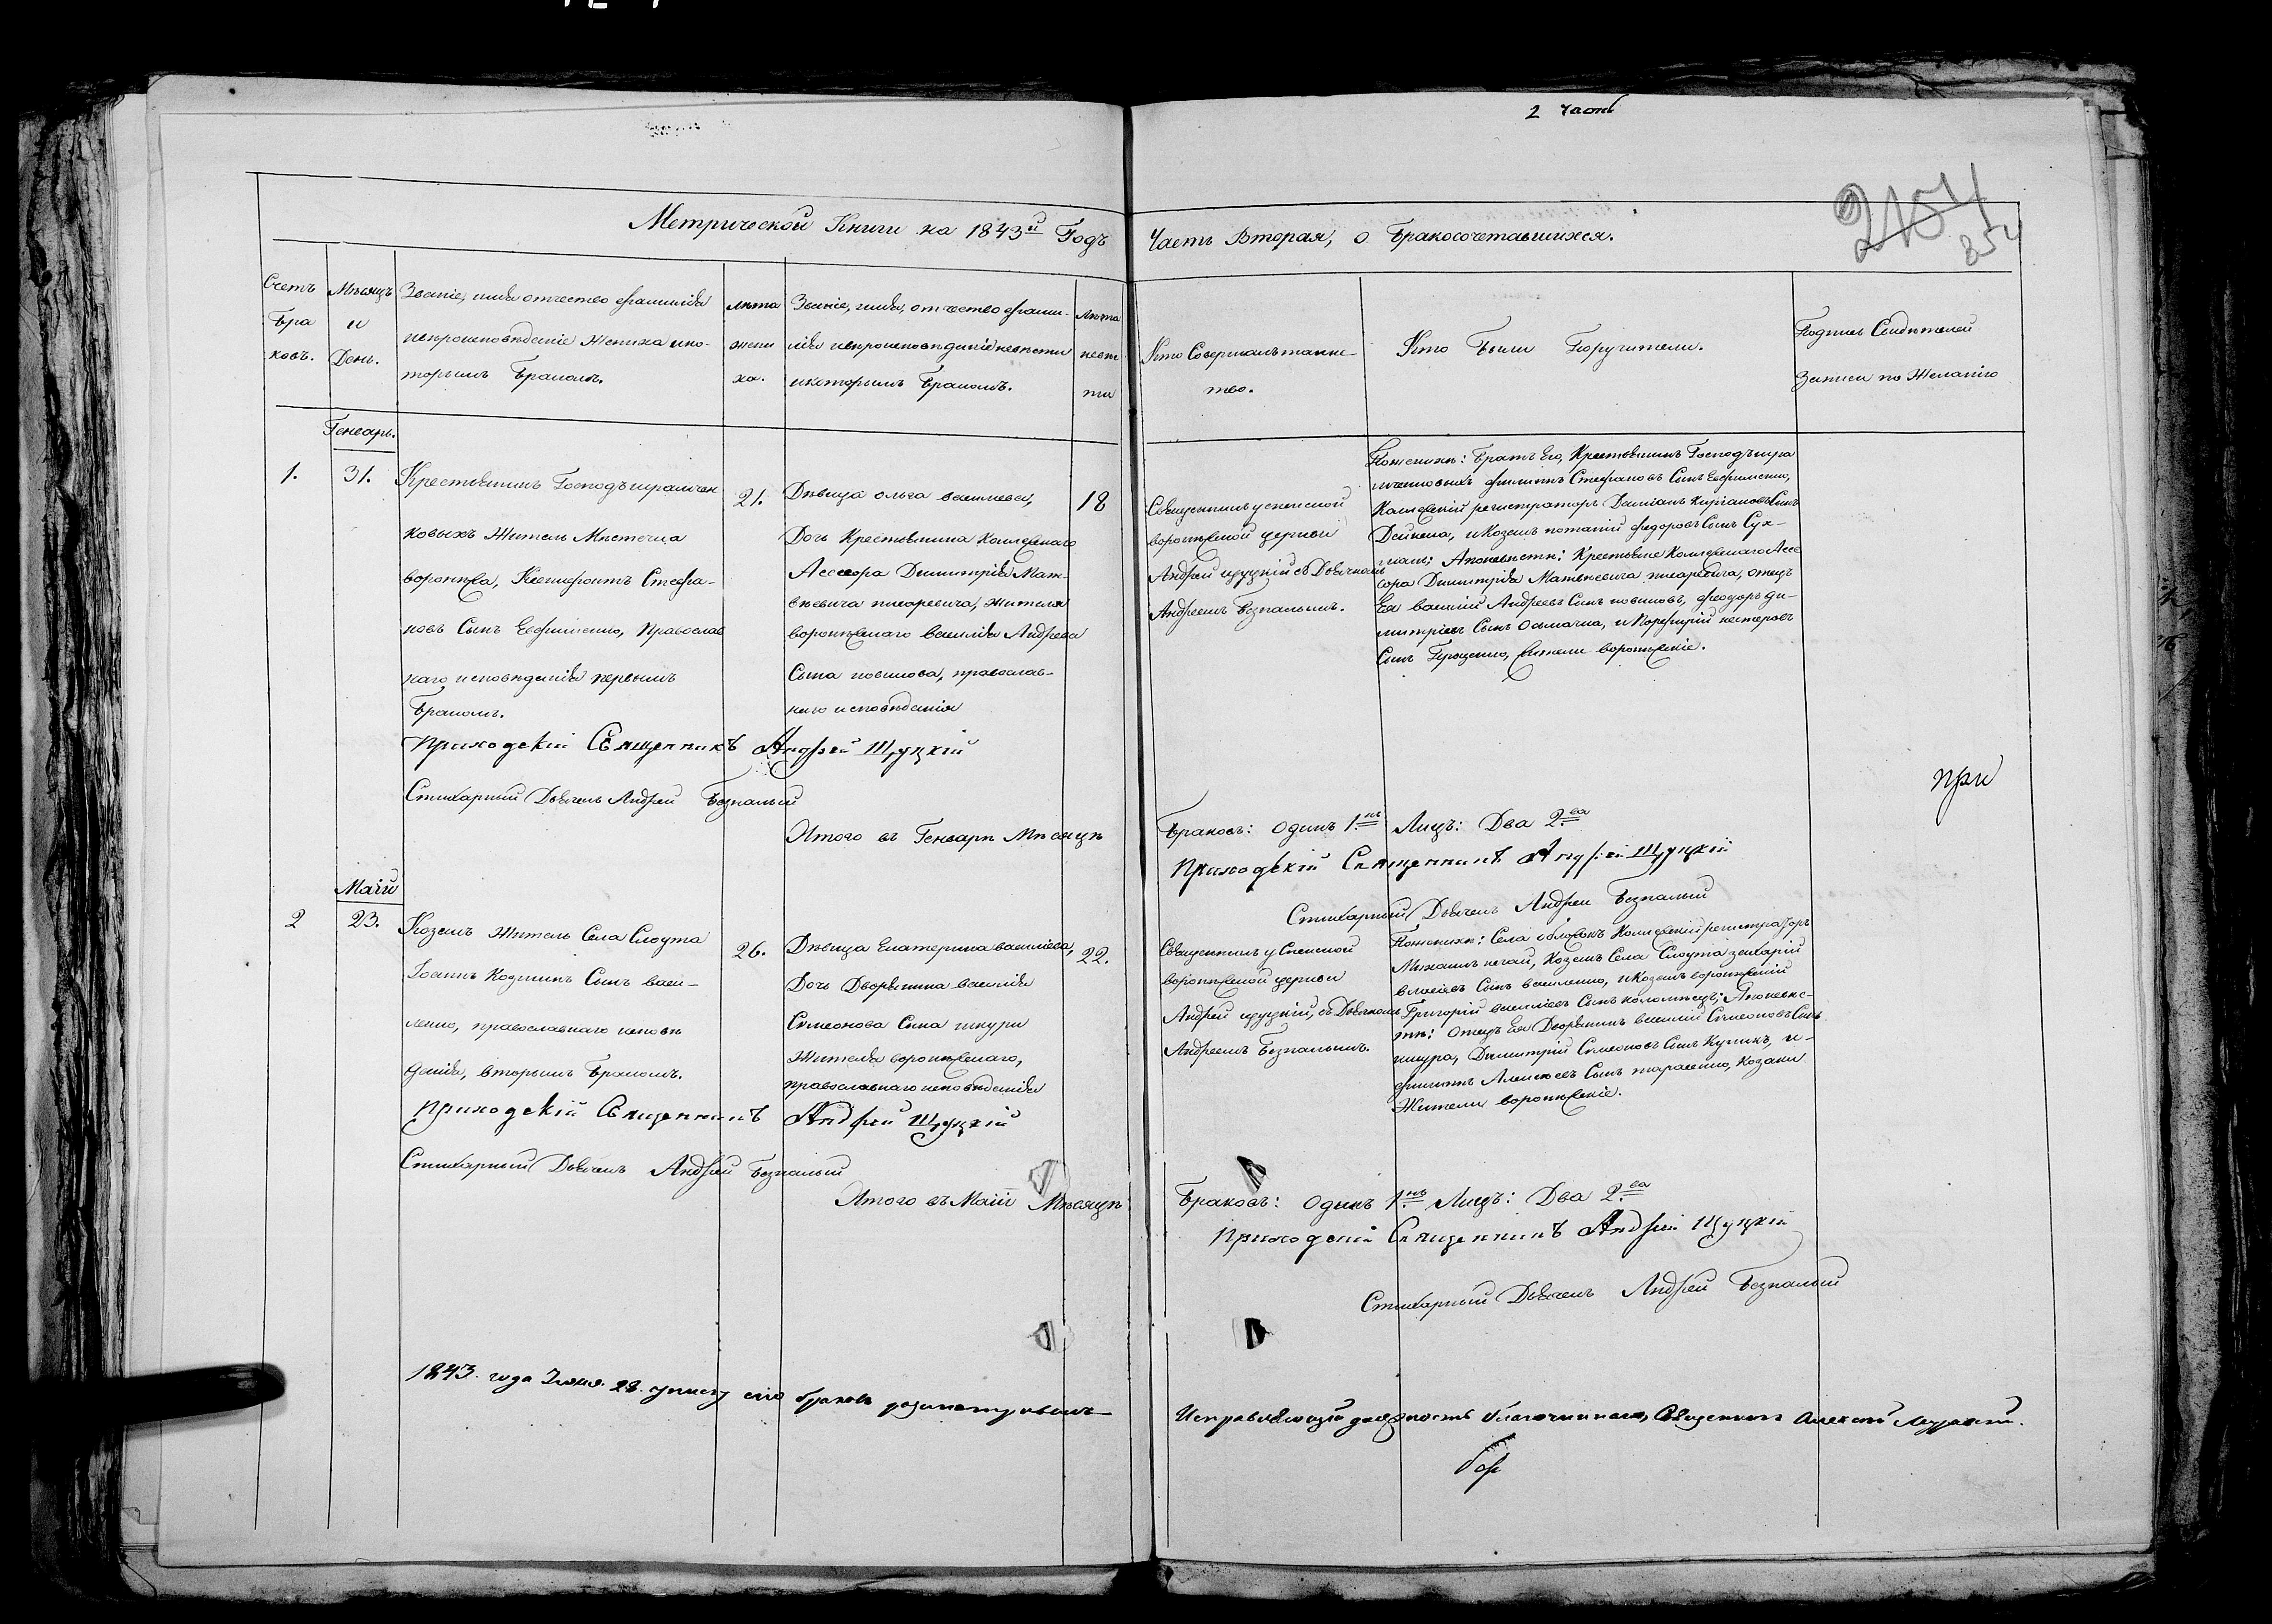 2 Часть
2154
354
Метрической Книги на 1843й Годъ Часть Вторая, о Бракосочетавшихся.
Счетъ
Бра
ковъ.
Мѣсяцъ
и
День.
Званіе, имя отчество фамилія
исповѣданіе Жениха и ко-
торымъ Бракомъ.
лѣта
жени
ха.
Званіе, имя, отчество фами-
лія исповѣданіе невѣсты
и которымъ Бракомъ.
Лѣта
невѣс
ты
Кто Совершалъ таинс-
тво.
Кто Были Поручители.
Подпись Свидѣтелей
Записи по Желанію
Генварь.
1.
31.
Крестьянинъ Господъ
ковыхъ Житель Мѣстечка
воронѣжа, Ксенофонтъ Стефа-
новъ Сынъ Евфименко, Православ
наго исповѣданія первымъ
Бракомъ.
21.
Дѣвица Ольга васильева,
Дочь Крестьянина Коллежскаго
Ассесора Димитрія Мат-
вѣевича писаревича, жителя
воронѣжскаго василія Андреева
Сына новикова, православ-
наго исповѣданія
18
Священникъ успенской
воронѣжской церкви
Андрей щуцкій съ Дьячкомъ
Андреемъ Безпалымъ.
По женихѣ: Братъ Его, Крестьянинъ Господъ
филиппъ Стефановъ Сынъ Евфименко,
Коллежскій регистраторъ Даміанъ Сынъ
Дейнека, и Козакъ потапій федоровъ Сынъ Сух-
А по невѣстѣ: Крестьяне Коллежскаго Ассе
сора Димитрія Матвѣевича писаревича, отецъ
Ея василій Андреевъ Сынъ новиковъ, феодоръ ди-
митріевъ Сынъ Осьмачка, и Порфирій нестеровъ
Сынъ Проценко, жители воронѣжскіе.
Приходскій Священникъ Андрей Щуцкій
Стихарный Дьячекъ Андрей Безпалый
при
Итого въ Генварѣ Мѣсяцѣ Браковъ: Одинъ 1.нъ Лицъ: Два 2.ва
Приходскій Священникъ Андрей Щуцкій
Стихарный Дьячекъ Андрей Безпалый
Маій
2
23.
Козакъ Житель Села Слоута
Іоаннъ Козминъ Сынъ васи-
ленко, православнаго исповѣ
данія, вторымъ Бракомъ.
26.
Дѣвица Екатерина василіева,
Дочь Дворянина василія
Симеонова Сына шкури
Жителя воронѣжскаго,
православнаго исповѣданія
22.
Священникъ успенской
воронѣжской церкви
Андрей щуцкій, съ Дьячкомъ
Андреемъ Безпалымъ.
По женихѣ: Села Коллежскій регистраторъ
Михаилъ нечай, Козакъ Села Слоута захарій
власіевъ Сынъ василенко, и Козакъ воронѣжскій
Григорій василіевъ Сынъ коломіецъ; А по невѣс-
тѣ: Отецъ Ея Дворянинъ василій Симеоновъ Сынъ
шкура, Димитрій Симеоновъ Сынъ Куликъ, и
филиппъ Алексѣевъ Сынъ тарасенко, Козаки
Жители воронѣжскіе.
Приходскій Священникъ Андрей Щуцкій
Стихарный Дьячекъ Андрей Безпалый
Итого въ Маіи Мѣсяцѣ Браковъ: Одинъ 1.нъ Лицъ: Два 2.ва
Приходскій Священникъ Андрей Щуцкій
Стихарный Дьячекъ Андрей Безпалый
1843. года Іюня. 28. сію браковъ разсматривалъ
Исправляющій должность благочиннаго, Священникъ Алексій